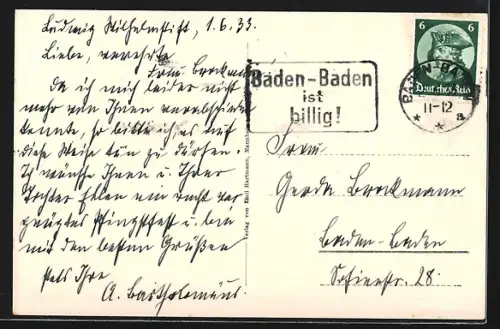 Ludwig Wilhelmstift, 1.6.33.
Liebe, verehrte
Frau Brockmann
Da ich mich leider nicht
mehr von Ihnen verabschieden
konnte, so bitte ich es auf
diese Weise tun zu dürfen.
Ich wünsche Ihnen u. Ihrer
Tochter Ellen ein recht ver-
gnügtes Pfingstfest u. bin
mit den besten Grüßen
stets Ihre
A. Bartholomäus.
Verlag von Emil Hartmann,
6 6
Deutsches Reich
BADEN-BADEN
11-12
* * a
Baden-Baden
ist
billig!
Frau
Gerda Brockmann
Baden-Baden
Sofienstr. 28.